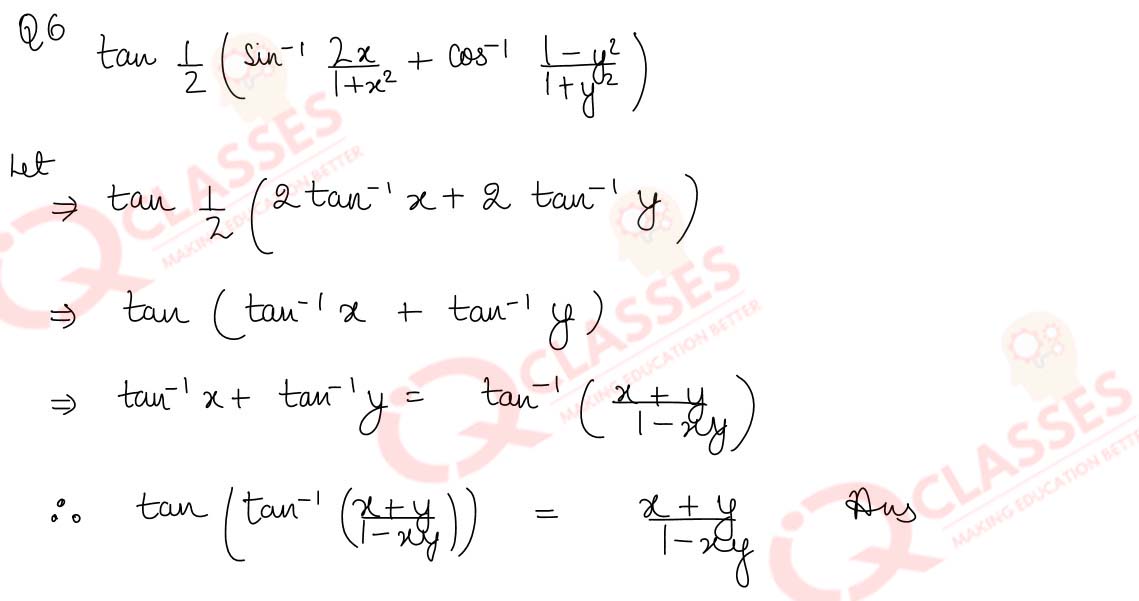 Q6
tan 1/2 (sin⁻¹ 2x/1+x² + cos⁻¹ 1-y²/1+y²)
Let
⇒ tan 1/2 (2 tan⁻¹ x + 2 tan⁻¹ y)
⇒ tan (tan⁻¹ x + tan⁻¹ y)
⇒ tan⁻¹ x + tan⁻¹ y = tan⁻¹ (x + y/1 - xy)
∴ tan (tan⁻¹ (x + y/1 - xy)) = x + y/1 - xy Ans
IQ CLASSES
MAKING EDUCATION BETTER
IQ CLASSES
MAKING EDUCATION BETTER
IQ CLASSES
MAKING EDUCATION BETTER